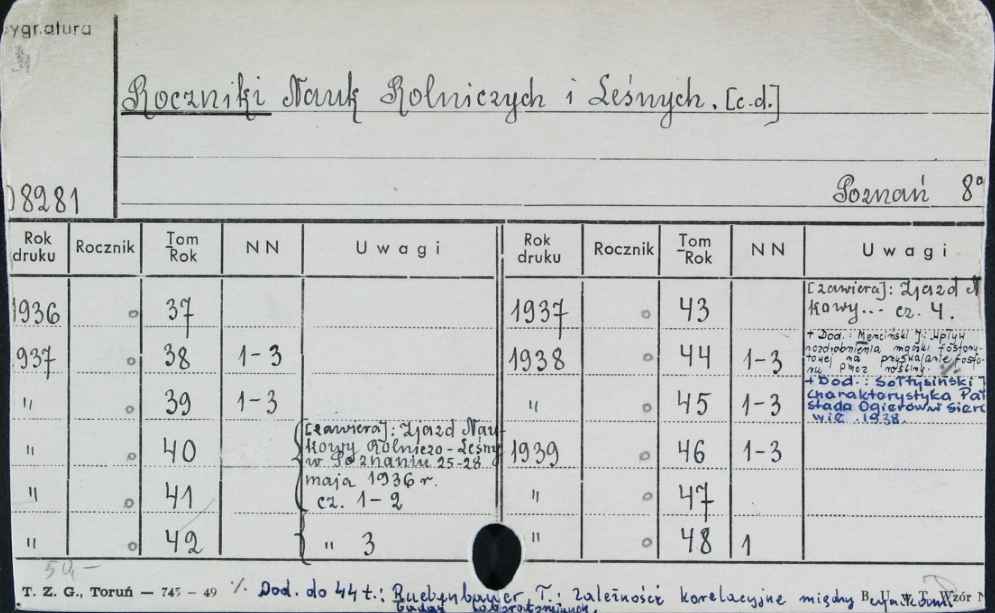 ygnatura
Roczniki Nauk Rolniczych i Leśnych. [c.d.]
08281
Poznań 8°
Rok druku Rocznik Tom Rok NN Uwagi Rok druku Rocznik Tom Rok NN Uwagi
1936 37 1937 43 [zawiera]: Zjazd N
kowy... cz. 4.
937 38 1-3 1938 44 1-3 + Dod.: Menciński J: Wpływ
rozdrobnienia mączki fosfory-
towej na przyswajanie fosfo-
ru przez rośliny.
" 39 1-3 " 45 1-3 + Dod.: Sołtysiński J
Charakterystyka Pań
stada Ogierów w Siera
wie. 1938.
" 40 [zawiera]: Zjazd Nau-
kowy Rolniczo-Leśny
w Poznaniu 25-28
maja 1936 r.
cz. 1-2
1939 46 1-3
" 41 " 47
" 42 " 3 " 48 1
50,-
T. Z. G., Toruń — 745 — 49 ./. Dod. do 44 t.: Ruebenbauer T.: zależności korelacyjne między
badań laboratoryjnych.